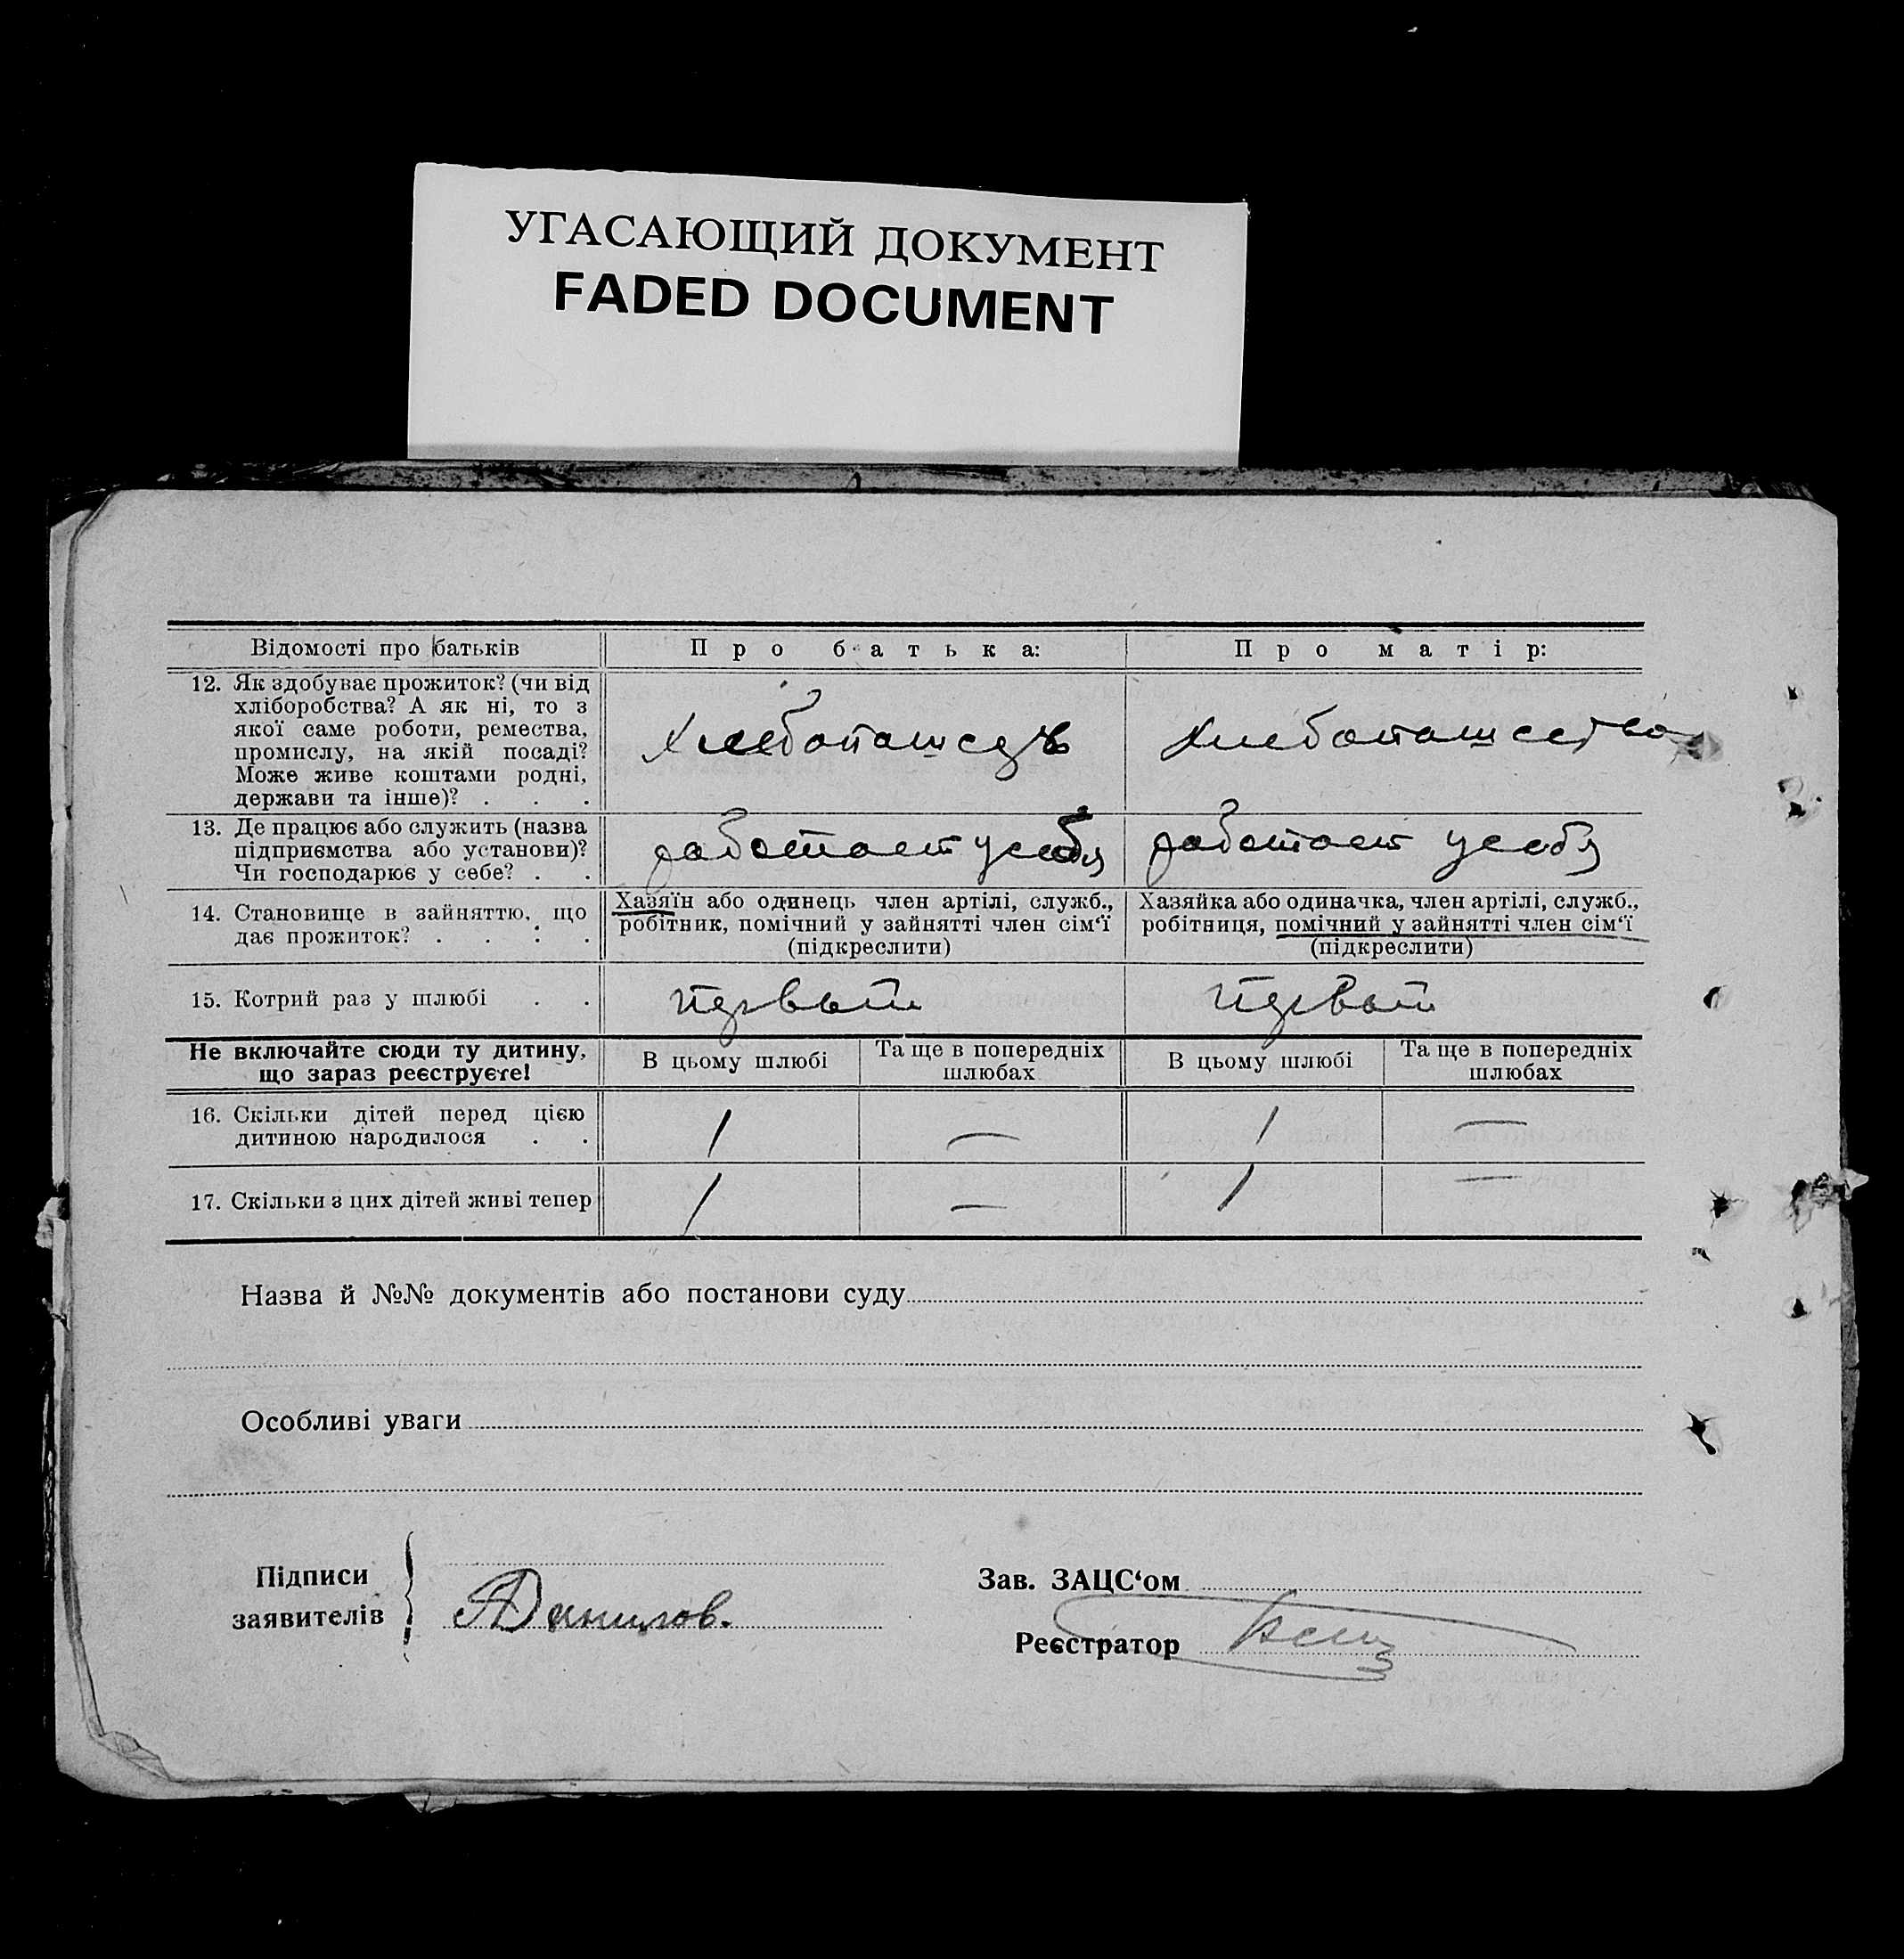 УГАСАЮЩИЙ ДОКУМЕНТ
FADED DOCUMENT
Відомості про батьків
Про батька:
Про матір:
12. Як здобуває прожиток? (чи від
хліборобства? А як ні, то з
якої саме роботи, ремества,
промислу, на якій посаді?
Може живе коштами родні,
держави та інше)? . . .
13. Де працює або служить (назва
підприємства або установи)?
Чи господарює у себе? . .
работает у себя
работает у себя
14. Становище в зайняттю, що
дає прожиток? . . . .
Хазяїн або одинець член артілі, служб.,
робітник, помічний у зайнятті член сім‘ї
(підкреслити)
Хазяйка або одиначка, член артілі, служб.,
робітниця, помічний у зайнятті член сім‘ї
(підкреслити)
15. Котрий раз у шлюбі . .
первый
первый
Не включайте сюди ту дитину,
що зараз реєструєте!
В цьому шлюбі
Та ще в попередніх
шлюбах
В цьому шлюбі
Та ще в попередніх
шлюбах
16. Скільки дітей перед цією
дитиною народилося . .
1
—
1
—
17. Скільки з цих дітей живі тепер
1
—
1
—
Назва й №№ документів або постанови суду
Особливі уваги
Підписи
заявителів
Данилов.
Зав. ЗАЦС‘ом
Реєстратор